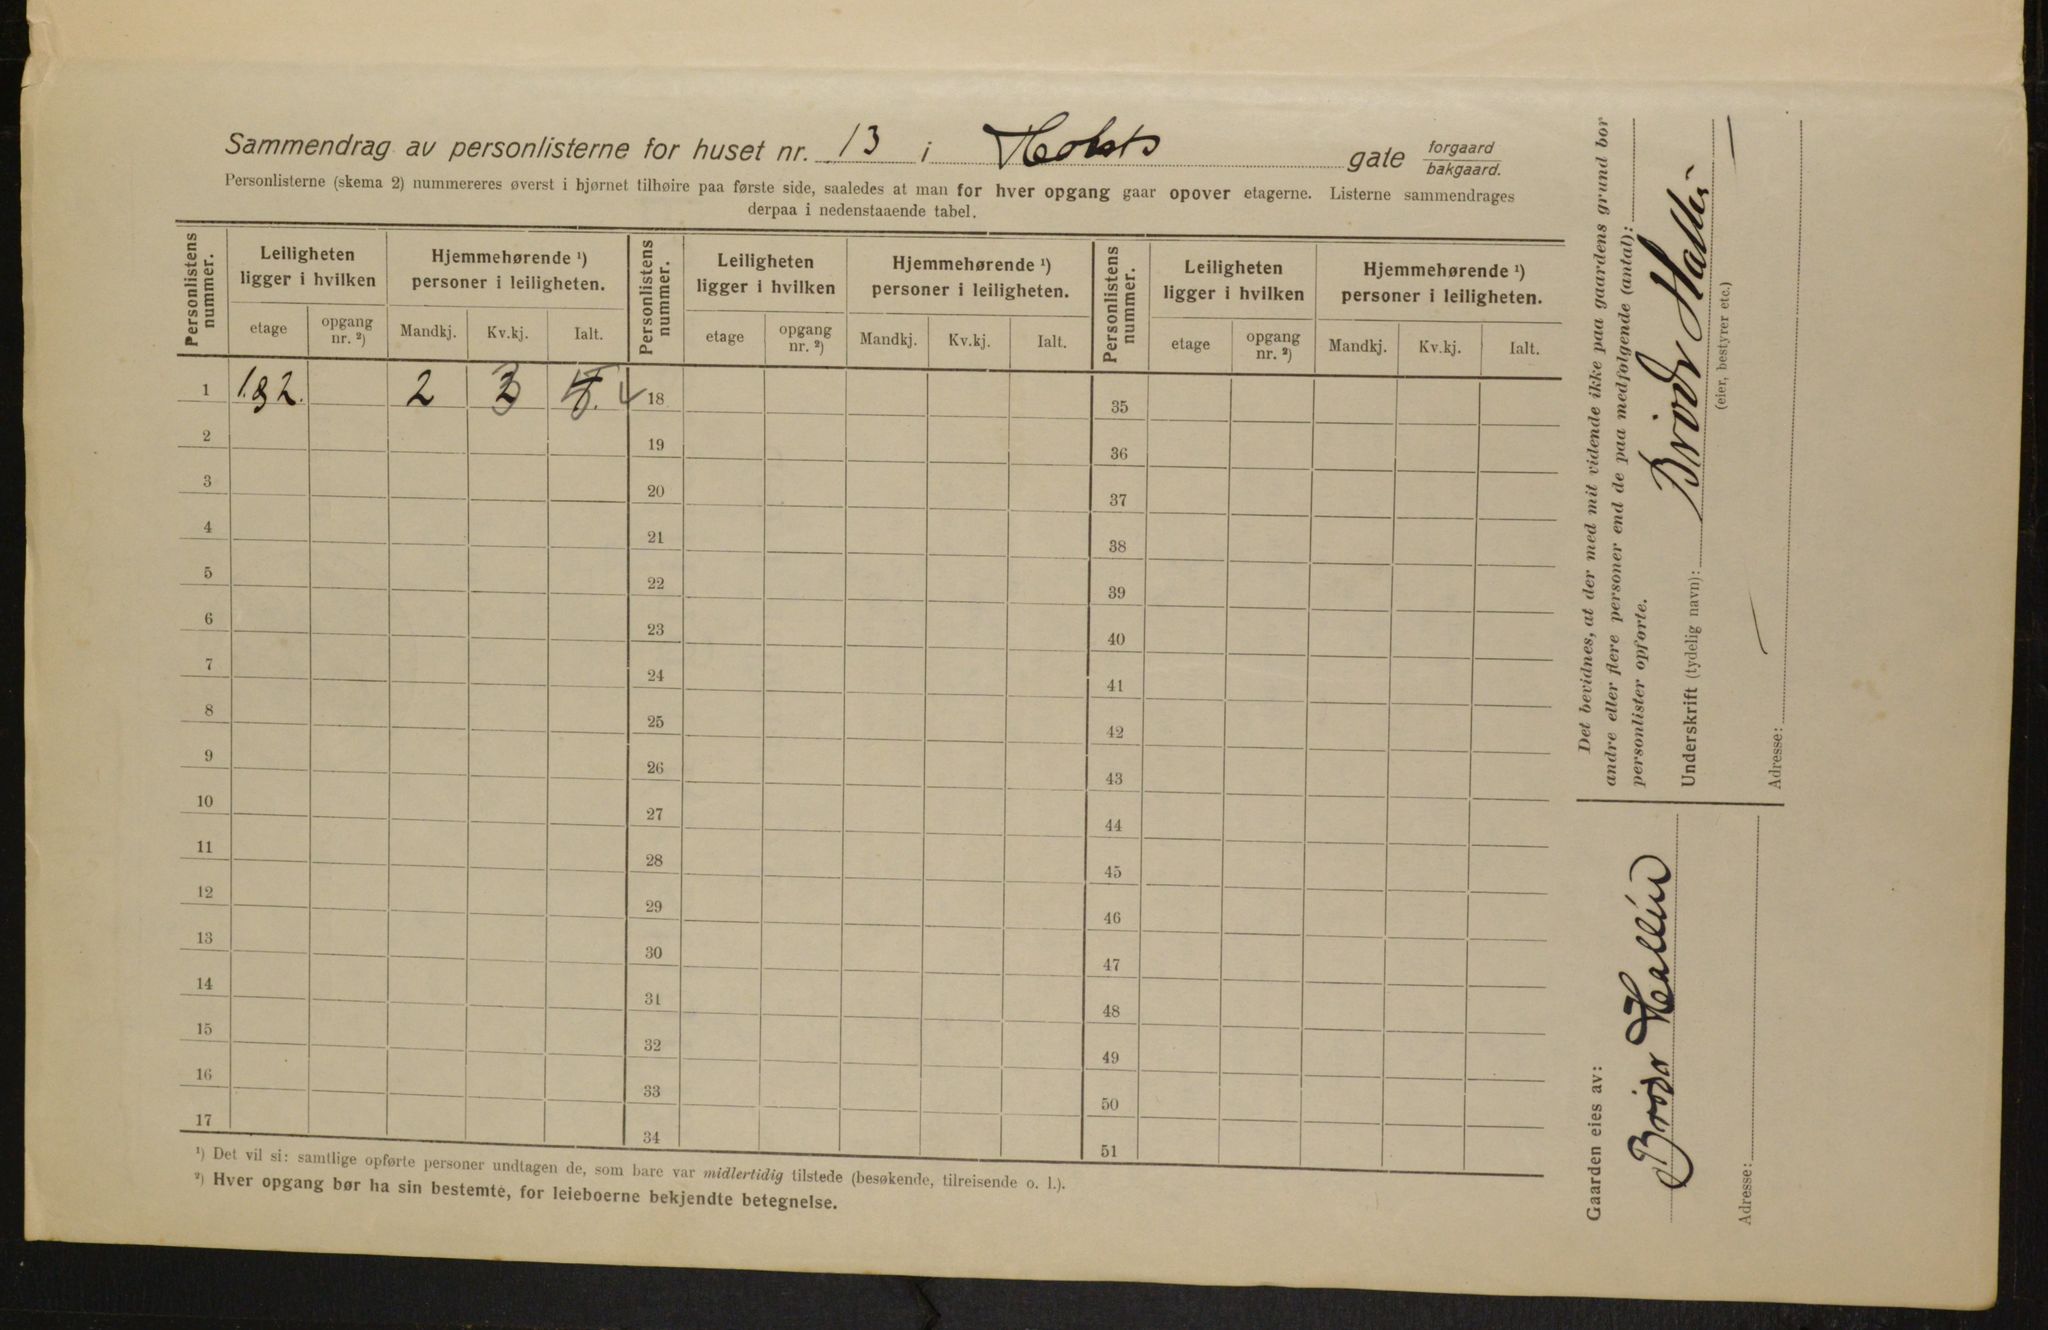 Sammendrag av personlisterne for huset nr. 13 i Holsts gate forgaard
bakgaard.
Personlisterne (skema 2) nummereres øverst i hjørnet tilhøire paa første side, saaledes at man for hver opgang gaar opover etagerne. Listerne sammendrages
derpaa i nedenstaaende tabel.
Personlistens nummer. Leiligheten ligger i hvilken Hjemmehørende ¹) personer i leiligheten. Personlistens nummer. Leiligheten ligger i hvilken Hjemmehørende ¹) personer i leiligheten. Personlistens nummer. Leiligheten ligger i hvilken Hjemmehørende ¹) personer i leiligheten.
etage opgang nr. ²) Mandkj. Kv.kj. Ialt. etage opgang nr. ²) Mandkj. Kv.kj. Ialt. etage opgang nr. ²) Mandkj. Kv.kj. Ialt.
1 1 & 2. 2 3 18 35
2 19 36
3 20 37
4 21 38
5 22 39
6 23 40
7 24 41
8 25 42
9 26 43
10 27 44
11 28 45
12 29 46
13 30 47
14 31 48
15 32 49
16 33 50
17 34 51
¹) Det vil si: samtlige opførte personer undtagen de, som bare var midlertidig tilstede (besøkende, tilreisende o. l.).
²) Hver opgang bør ha sin bestemte, for leieboerne bekjendte betegnelse.
Det bevidnes, at der med mit vidende ikke paa gaardens grund bor
andre eller flere personer end de paa medfølgende (antal):
personlister opførte.
Underskrift (tydelig navn): Brødr Hallén
(eier, bestyrer etc.)
Adresse:
Gaarden eies av:
Brødr Hallén
Adresse: